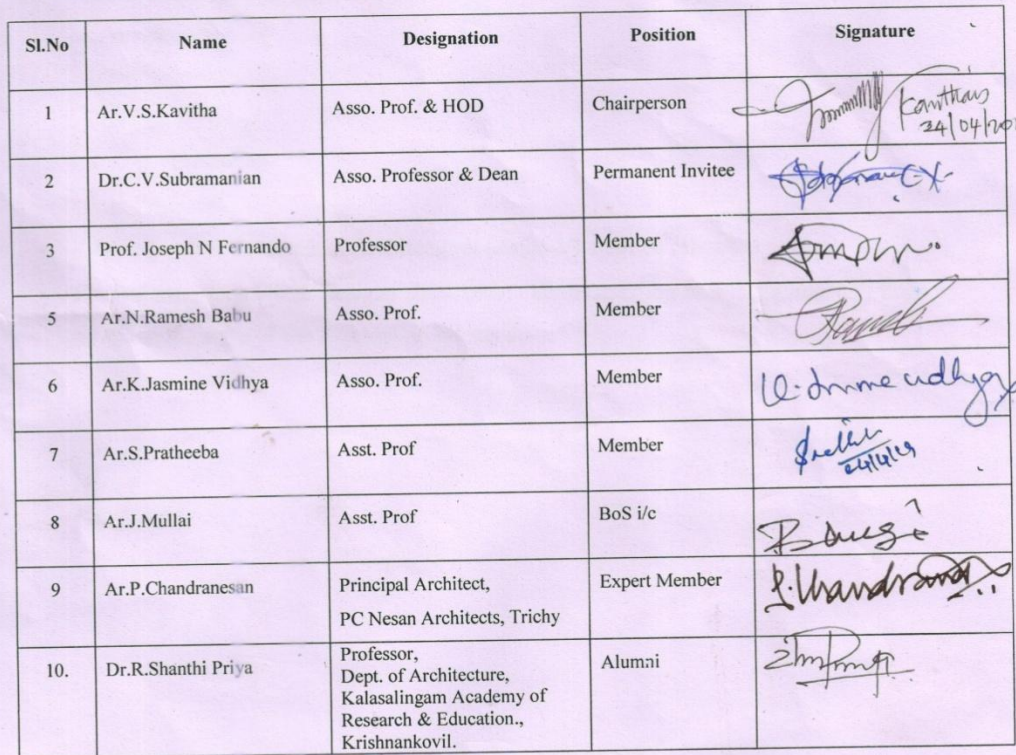 Sl.No Name Designation Position Signature
1 Ar.V.S.Kavitha Asso. Prof. & HOD Chairperson
24/04/201
2 Dr.C.V.Subramanian Asso. Professor & Dean Permanent Invitee
3 Prof. Joseph N Fernando Professor Member
5 Ar.N.Ramesh Babu Asso. Prof. Member
6 Ar.K.Jasmine Vidhya Asso. Prof. Member
7 Ar.S.Pratheeba Asst. Prof Member
24/4/19
8 Ar.J.Mullai Asst. Prof BoS i/c
9 Ar.P.Chandranesan Principal Architect, Expert Member
PC Nesan Architects, Trichy
10. Dr.R.Shanthi Priya Professor, Alumni
Dept. of Architecture,
Kalasalingam Academy of
Research & Education.,
Krishnankovil.